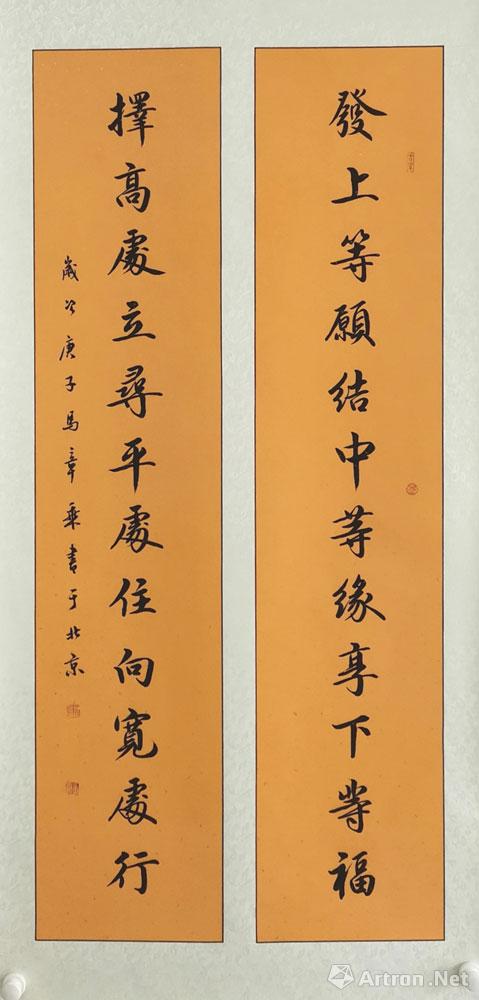 發上等願結中等緣享下等福
擇高處立尋平處住向寬處行
歲次庚子馬章乘書于北京
雅昌 Artron.Net